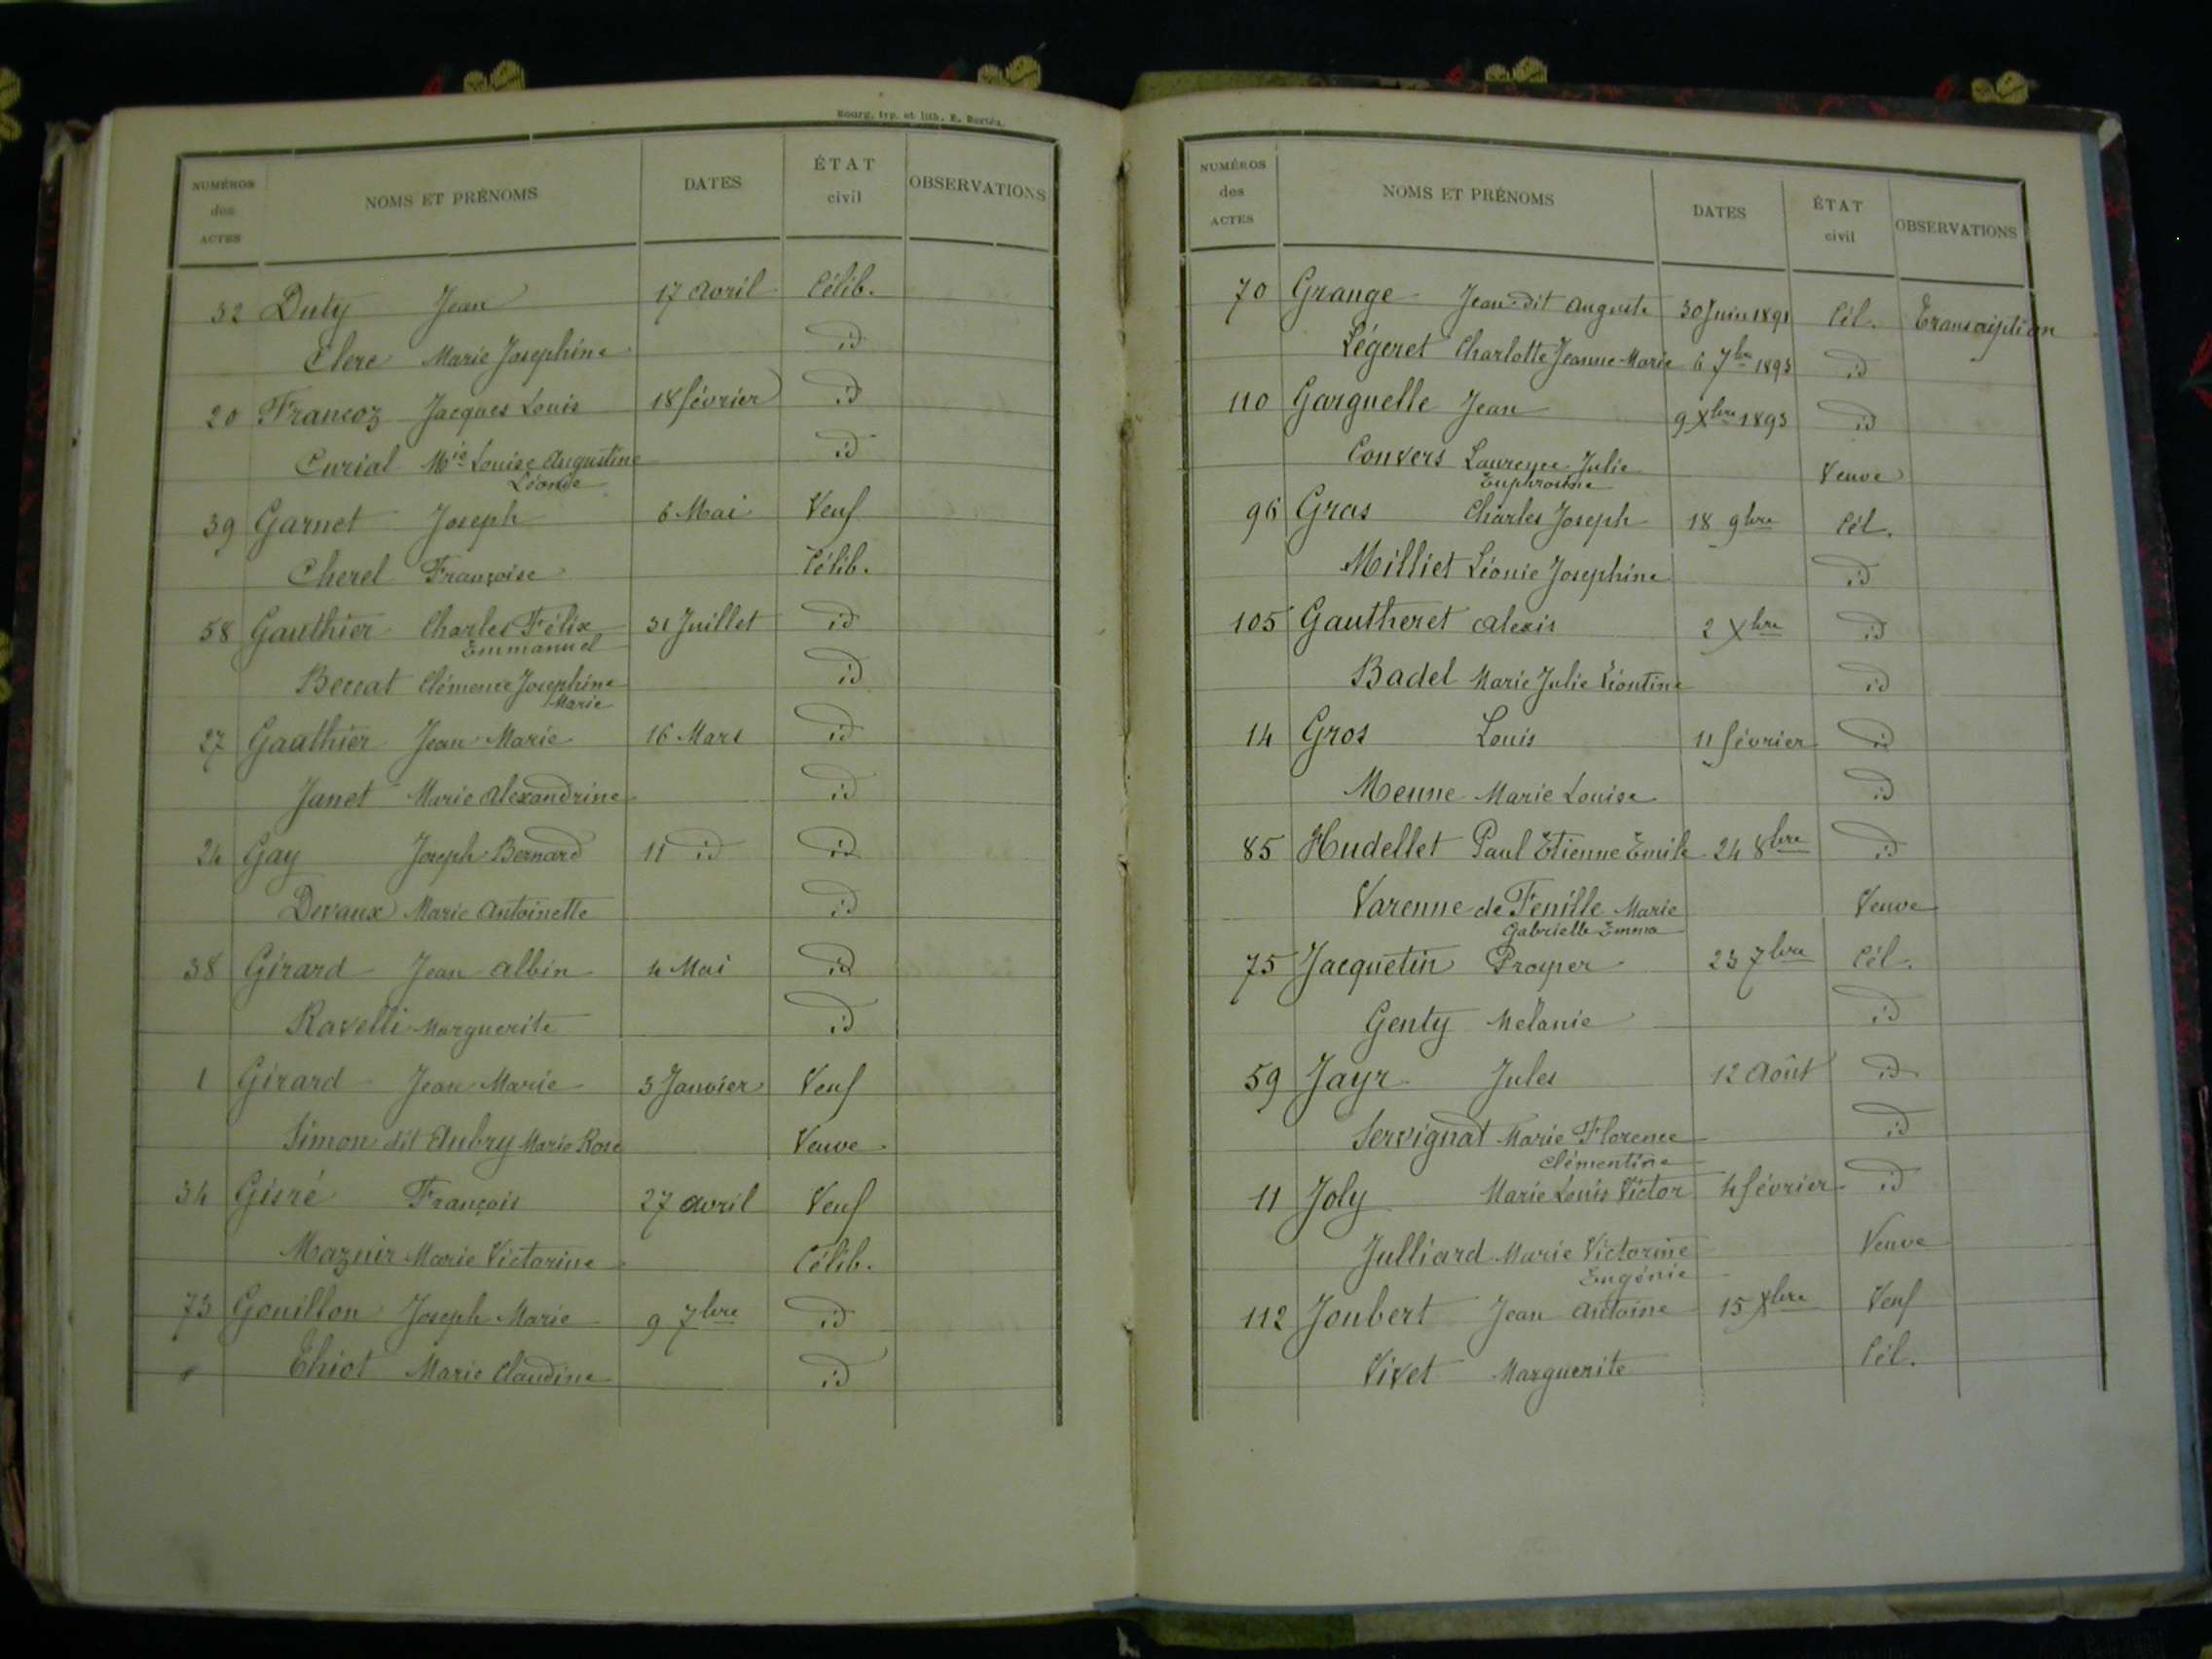 Bourg, typ. et lith. E. Bertéa.
NUMÉROS des ACTES NOMS ET PRÉNOMS DATES ÉTAT civil OBSERVATIONS
32 Duty Jean 17 avril Célib.
Clerc Marie Joséphine id
20 Francoz Jacques Louis 18 février id
Curial Mie Louise Augustine id
Léonide
39 Garnet Joseph 6 Mai Veuf
Cherel Françoise Célib.
58 Gauthier Charles Félix 31 Juillet id
Emmanuel
Beccat Clémence Joséphine id
Marie
27 Gauthier Jean Marie 16 Mars id
Janet Marie Alexandrine id
24 Gay Joseph Bernard 11 id id
Devaux Marie Antoinette id
38 Girard Jean Albin 4 Mai id
Ravelli Marguerite id
1 Girard Jean Marie 3 Janvier Veuf
Simon dit Aubry Marie Rose Veuve
34 Gisré François 27 avril Veuf
Mazuir Marie Victorine Célib.
73 Gouillon Joseph Marie 9 7bre id
Thiot Marie Claudine id
NUMÉROS des ACTES NOMS ET PRÉNOMS DATES ÉTAT civil OBSERVATIONS
70 Grange Jean dit Auguste 30 Juin 1891 Cél. Transcription
Légeret Charlotte Jeanne Marie 6 7bre 1893 id
110 Garguelle Jean 9 Xbre 1893 id
Convers Laurence Julie Veuve
Euphrosine
96 Gras Charles Joseph 18 9bre Cél.
Milliet Léonie Joséphine id
105 Gautheret Alexis 2 Xbre id
Badel Marie Julie Léontine id
14 Gros Louis 11 février id
Meune Marie Louise id
85 Hudellet Paul Etienne Emile 24 8bre id
Varenne de Fenille Marie Veuve
Gabrielle Emma
75 Jacquetin Prosper 23 7bre Cél.
Genty Mélanie id
59 Jayr Jules 12 Août id
Servignat Marie Florence id
Clémentine
11 Joly Marie Louis Victor 4 février id
Julliard Marie Victorine Veuve
Eugénie
112 Joubert Jean Antoine 15 Xbre Veuf
Vivet Marguerite Cél.